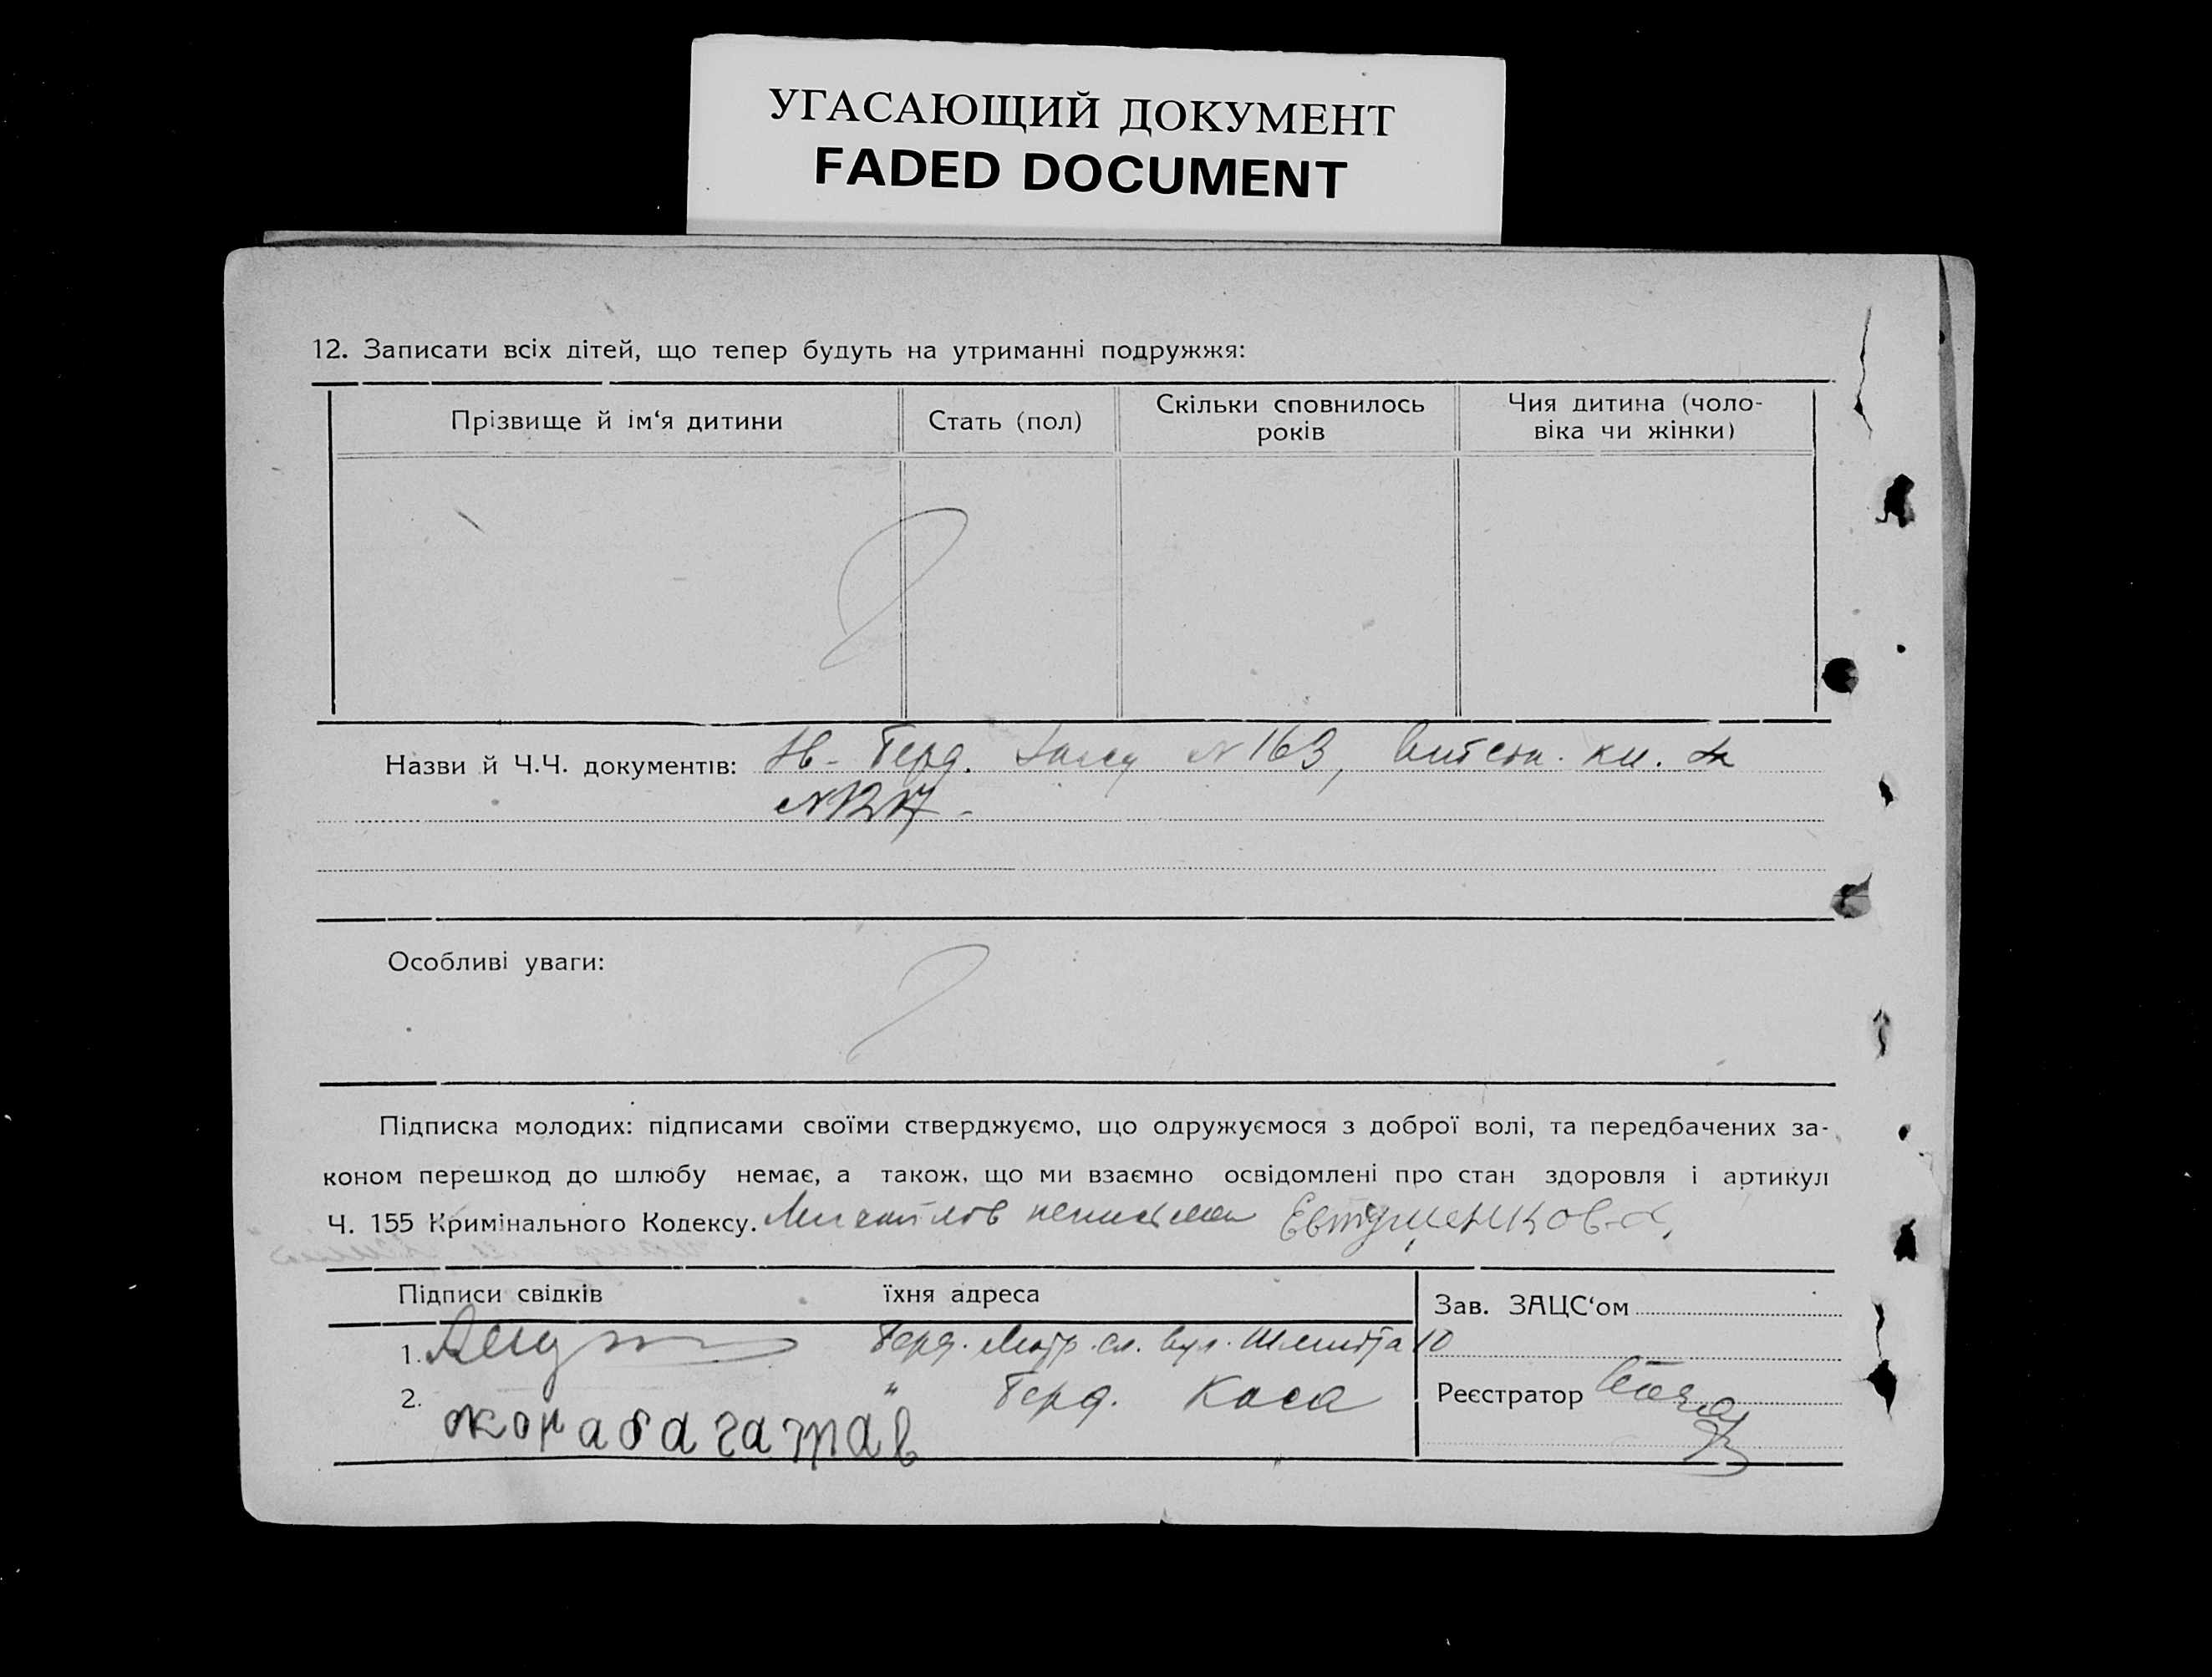 УГАСАЮЩИЙ ДОКУМЕНТ
FADED DOCUMENT
12. Записати всіх дітей, що тепер будуть на утриманні подружжя:
Прізвище й ім‘я дитини
Стать (пол)
Скільки сповнилось
років
Чия дитина (чоло-
віка чи жінки)
Назви й Ч.Ч. документів: Берд. N 163, кн.
Особливі уваги:
Підписка молодих: підписами своїми стверджуємо, що одружуємося з доброї волі, та передбачених за-
коном перешкод до шлюбу немає, а також, що ми взаємно освідомлені про стан здоровля і артикул
Ч. 155 Кримінального Кодексу. Михайлов
Підписи свідків
їхня адреса
Зав. ЗАЦС‘ом
1. Берд. вул. Шмидта 10
2. " Берд. Коса
Реєстратор